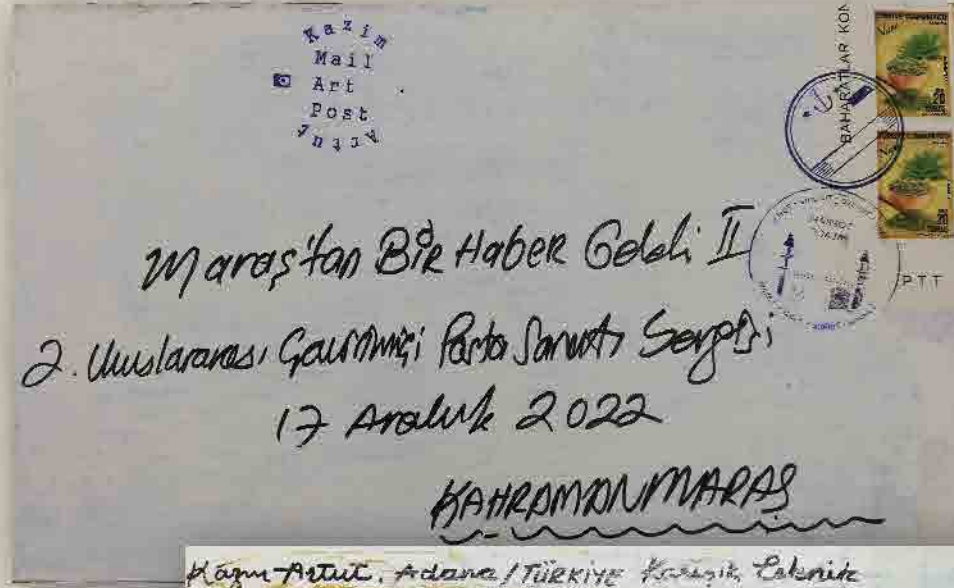 Kazim
Mail
Art
Post
Artut
BAHARATLAR KON
20
20
PTT
Maraş'tan Bir Haber Geldi II
2. Uluslararası Çevrimiçi Posta Sanatı Sergisi
17 Aralık 2022
KAHRAMANMARAŞ
Kazım Artut, Adana/TÜRKİYE Karışık Teknik